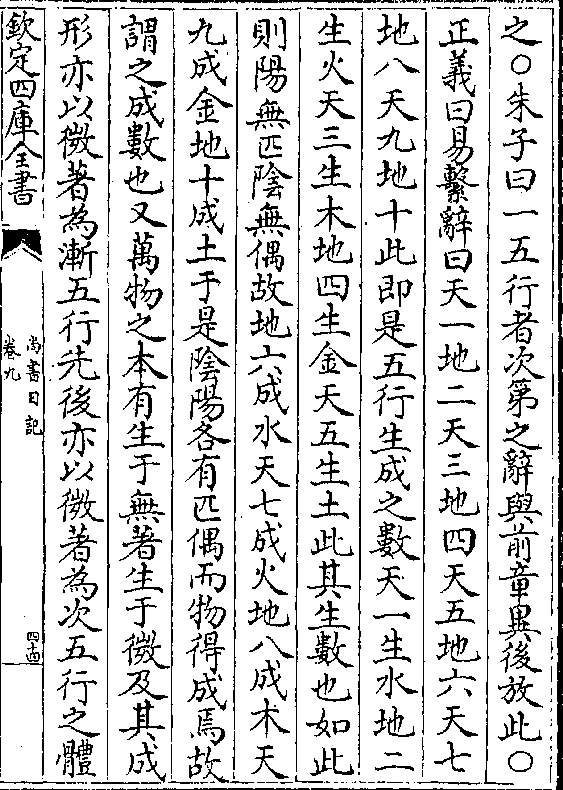 之○朱子曰一五行者次第之辭與前章異後放此○
正義曰易繫辭曰天一地二天三地四天五地六天七
地八天九地十此即是五行生成之數天一生水地二
生火天三生木地四生金天五生土此其生數也如此
則陽無匹陰無偶故地六成水天七成火地八成木天
九成金地十成土于是陰陽各有匹偶而物得成焉故
謂之成數也又萬物之本有生于無著生于微及其成
形亦以微著為漸五行先後亦以微著為次五行之體
欽定四庫全書
尚書日記
卷九
四十四